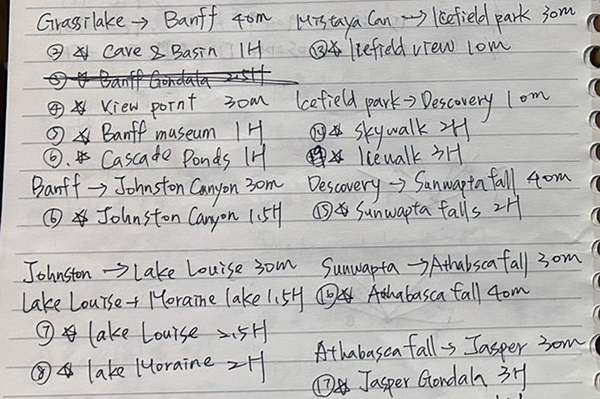 Grassilake → Banff 40m
② ☆ Cave & Basin 1H
③ ☆ Banff Gondala 2.5H
④ ☆ View point 30m
⑤ ☆ Banff museum 1H
⑥. ☆ Cascade Ponds 1H
Banff → Johnston Canyon 30m
⑥ ☆ Johnston Canyon 1.5H
Johnston → Lake Louise 30m
Lake Louise → Moraine lake 1.5H
⑦ ☆ lake Louise 2.5H
⑧ ☆ lake Moraine 2H
Mistaya Can → Icefield park 30m
⑬ ☆ Icefield view 10m
Icefield park → Descovery 10m
⑭ ☆ skywalk 2H
☆ Icewalk 3H
Descovery → Sunwapta fall 40m
⑮ ☆ Sunwapta falls 2H
Sunwapta → Athabsca fall 30m
⑯ ☆ Athabasca fall 40m
Athabasca fall → Jasper 30m
⑰ ☆ Jasper Gondala 3H